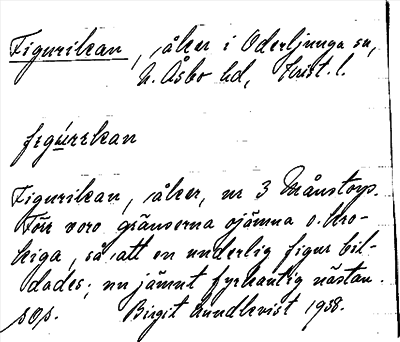 Figurikan, åker i Oderljunga sn,
N. Åsbo hd, Krist. l.
figúrrkan
Figurikan, åker, nr 3 Månstorp.
Förr voro gränserna ojämna o. kro-
kiga, så att en underlig figur bil-
dades; nu jämnt fyrkantig nästan.
sps. Birgit Lundkvist 1938.